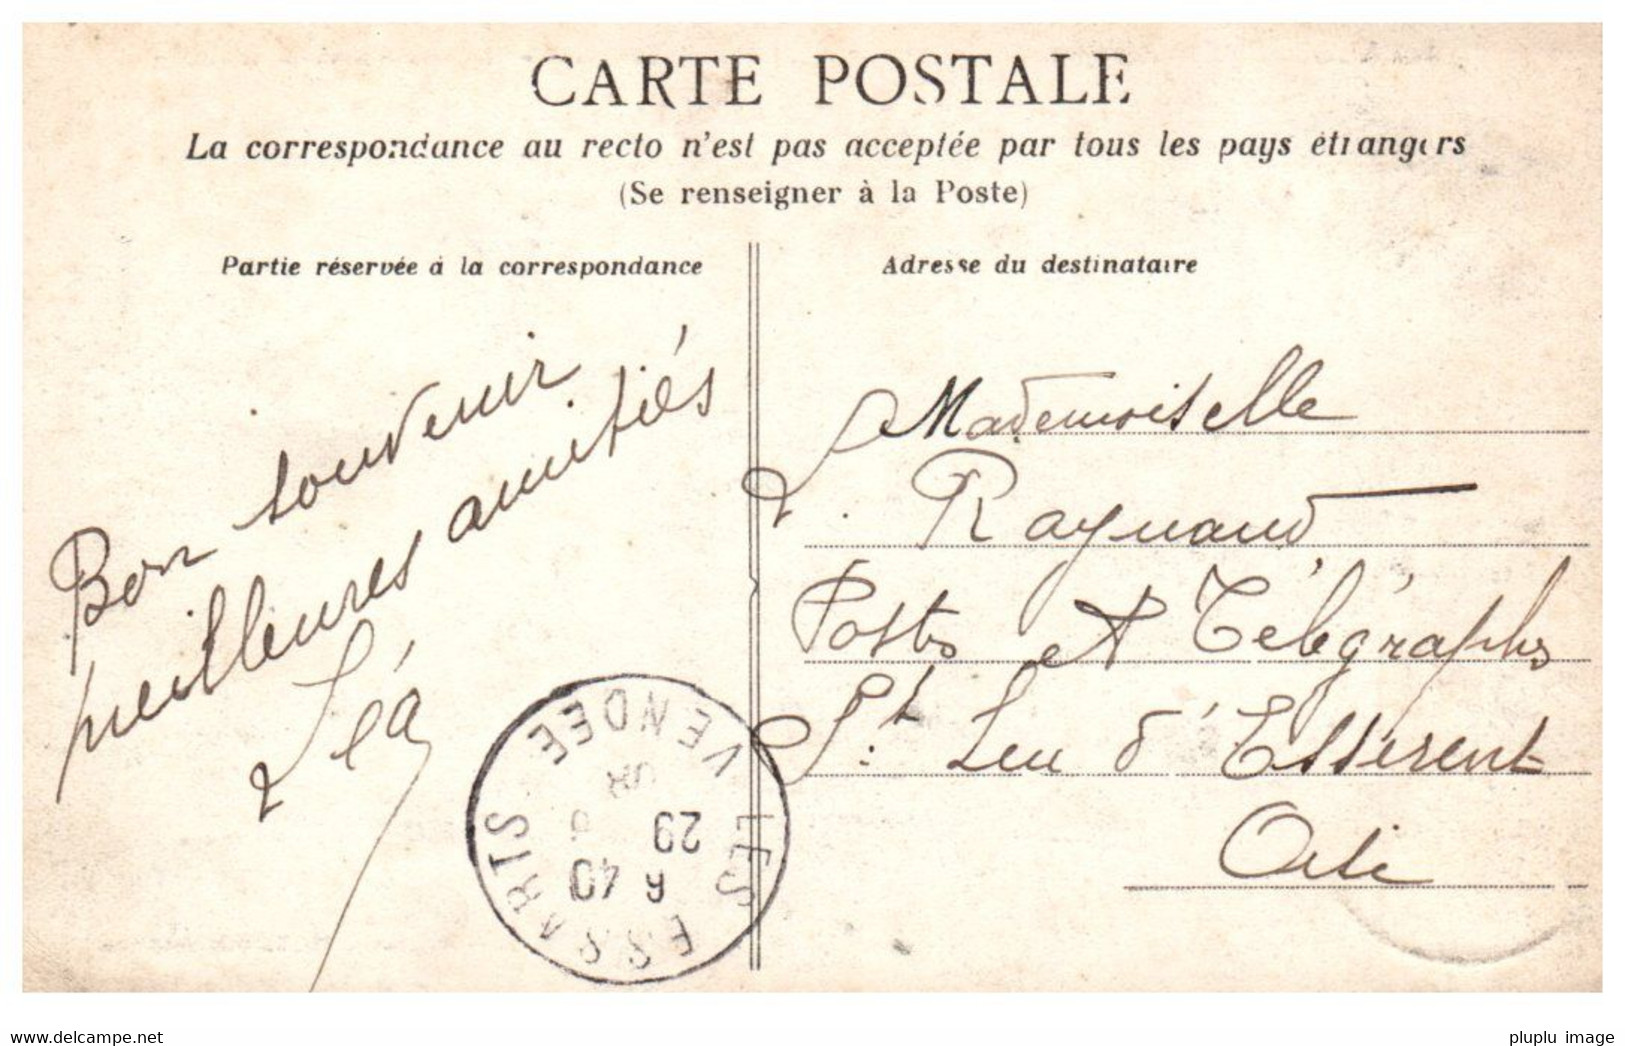 CARTE POSTALE
La correspondance au recto n'est pas acceptée par tous les pays étrangers
(Se renseigner à la Poste)
Partie réservée à la correspondance
Adresse du destinataire
Bon souvenir
meilleures amitiés
Léa
Mademoiselle
L. Raynaud
Postes et Télégraphes
St Leu d'Esserent
Oise
LES ESSARTS
VENDÉE
6 40
29
www.delcampe.net
pluplu image